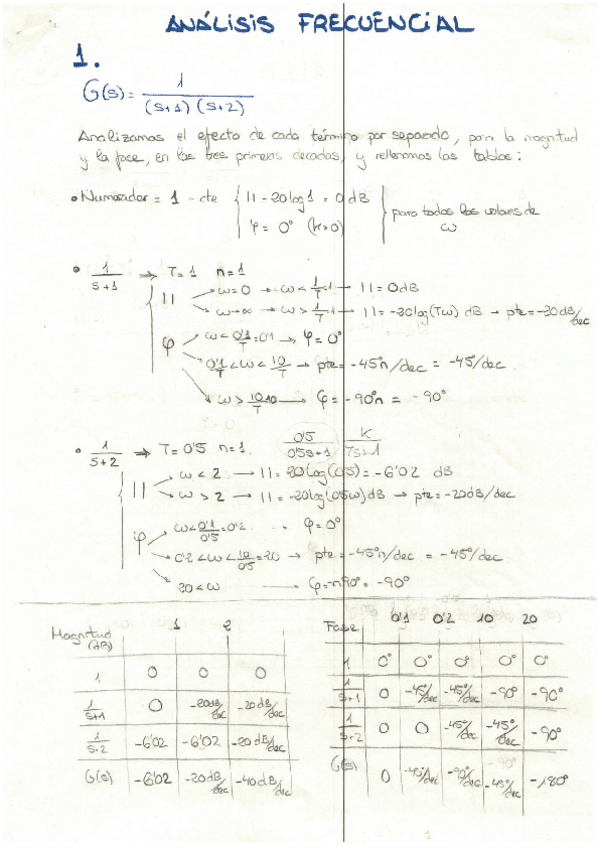 ANÁLISIS FRECUENCIAL
1.
G(s) = 1 / (s+1)(s+2)
Analizamos el efecto de cada término por separado, para la magnitud
y la fase, en las tres primeras décadas, y rellenamos las tablas:
• Numerador = 1 - cte { || - 20log1 = 0 dB
φ = 0° (k>0) } para todos los valores de ω
• 1/(s+1) → T=1 n=1
|| ω=0 → ω < 1/T = 1 → || = 0dB
ω→∞ → ω > 1/T = 1 → || = -20log(Tω) dB → pte = -20dB/dec
φ ω < 0'1/T = 0'1 → φ = 0°
0'1/T < ω < 10/T → pte = -45°n/dec = -45/dec.
ω > 10/T 10 — φ = -90°n = -90°
• 1/(s+2) → T=0'5 n=1. 0'5/(0'5s+1) k/(Ts+1)
|| ω < 2 → || = 20log(0'5) = -6'02 dB
ω > 2 → || = -20log(0'5ω) dB → pte = -20dB/dec
φ ω < 0'1/0'5 = 0'2 . . φ = 0°
0'2 < ω < 10/0'5 = 20 → pte = -45°n/dec = -45°/dec
20 < ω — φ = -n90° = -90°
Magnitud (dB) 1 2
1 0 0 0
1/(s+1) 0 -20dB/dec -20dB/dec
1/(s+2) -6'02 -6'02 -20dB/dec
G(s) -6'02 -20dB/dec -40dB/dec
Fase 0'1 0'2 10 20
1 0° 0° 0° 0° 0°
1/(s+1) 0 -45°/dec -45°/dec -90° -90°
1/(s+2) 0 0 -45°/dec -45°/dec -90°
G(s) 0 -45°/dec -90°/dec -90° -45°/dec -180°
1